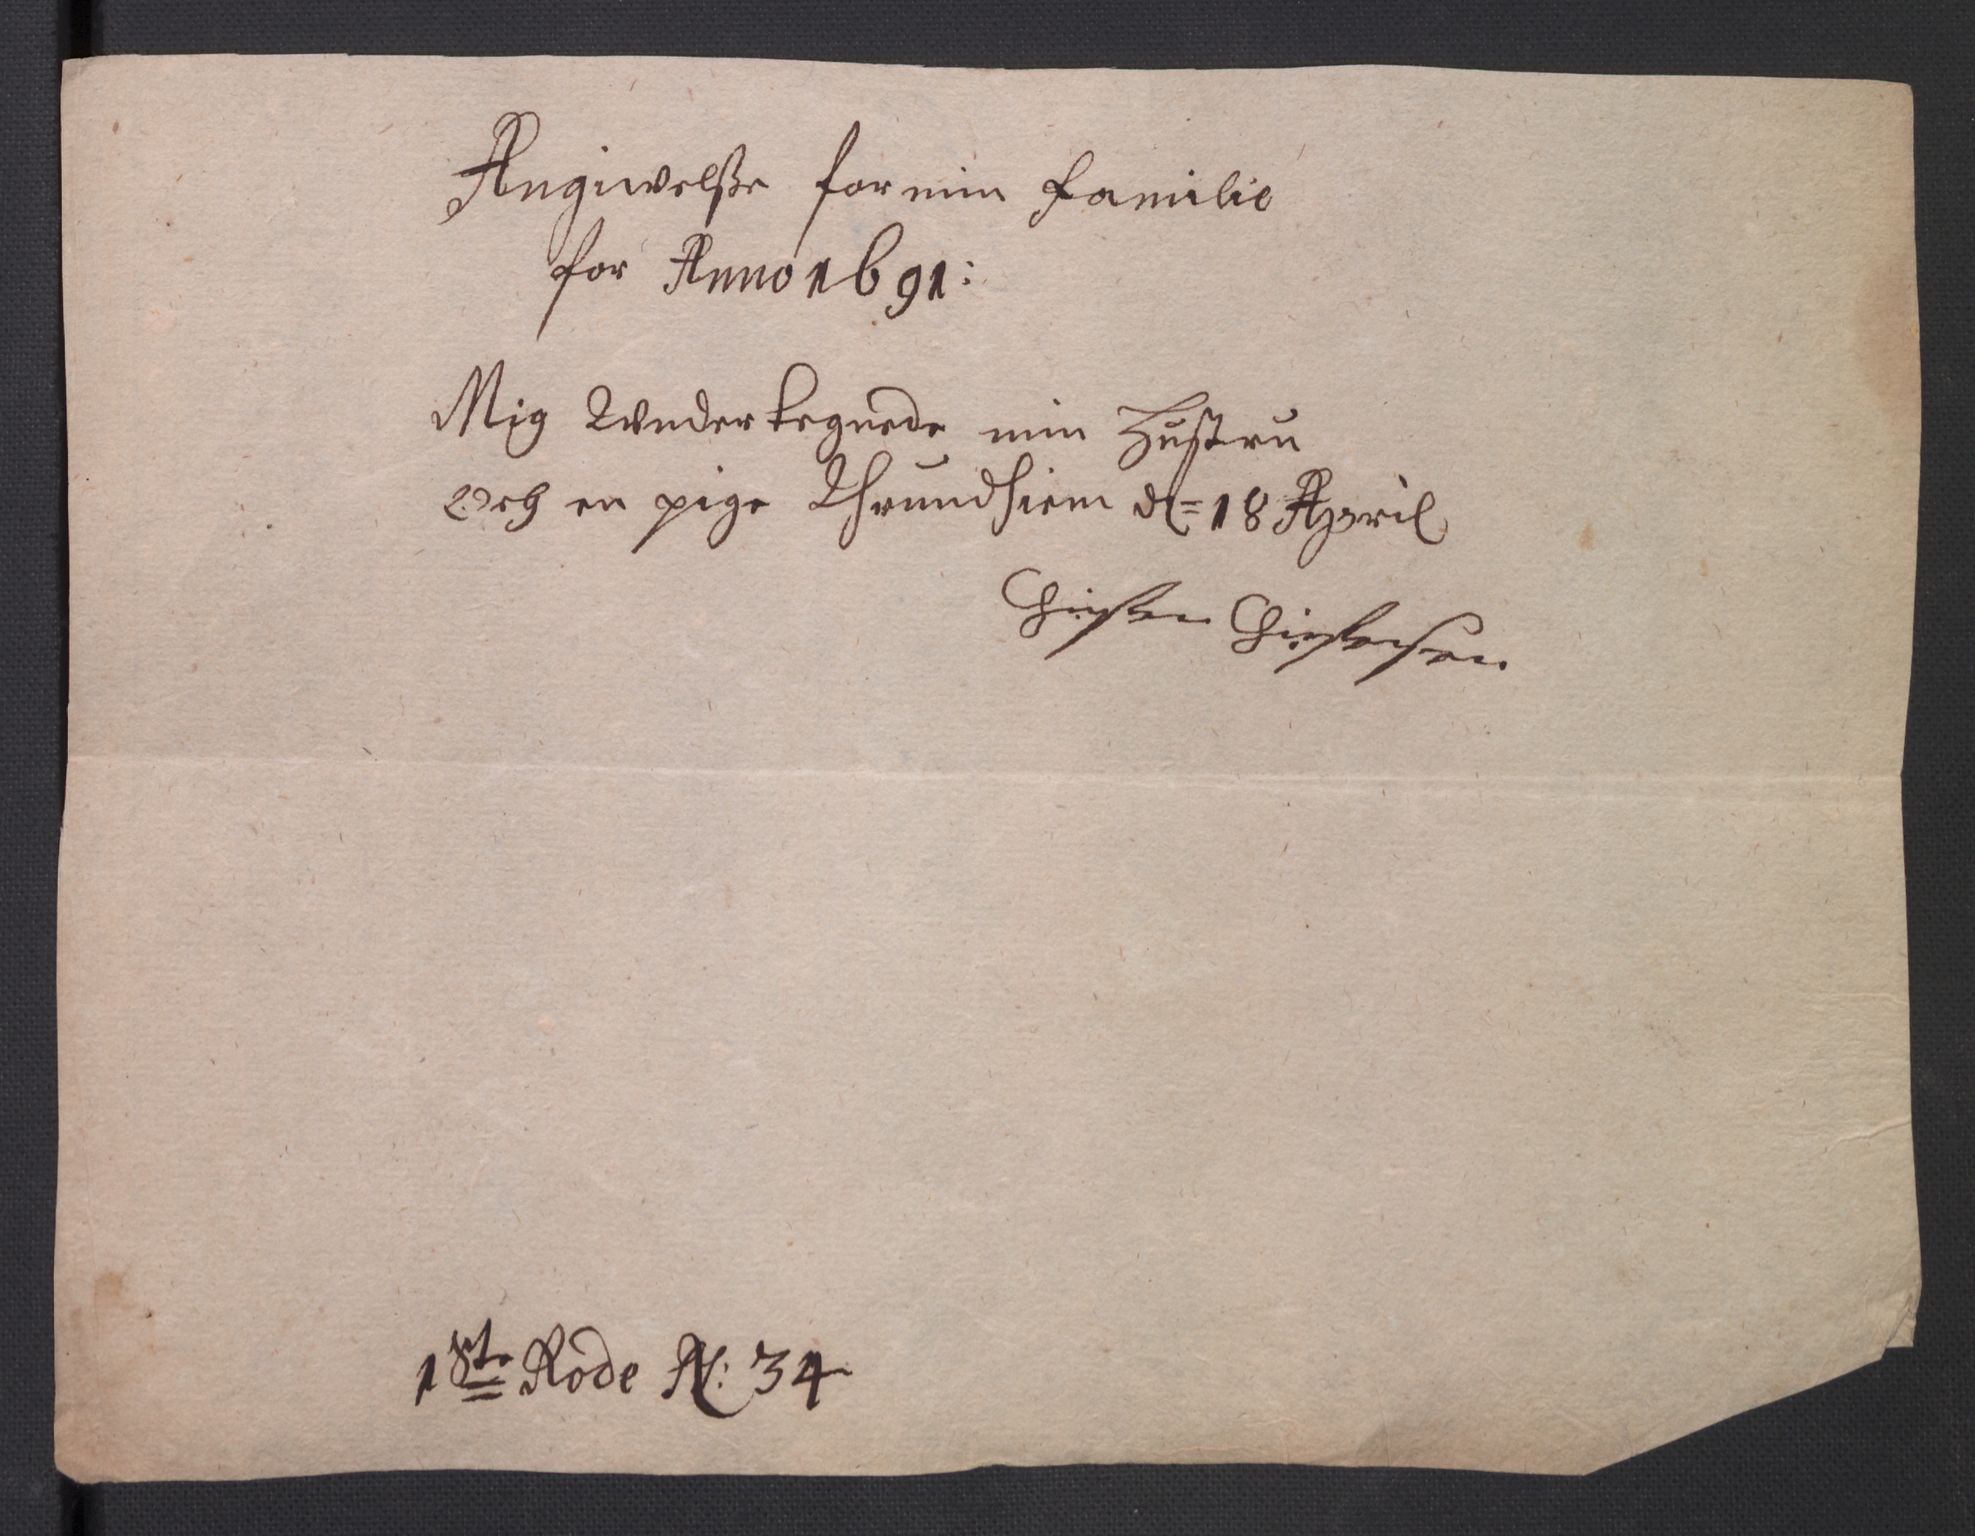 Angiwelße for min familie
for Anno 1691:
Mig Wndertegnede min Hustru
Och en pige Thrundhiem d= 18 April
Christen Christensen
1ste Rode N: 34